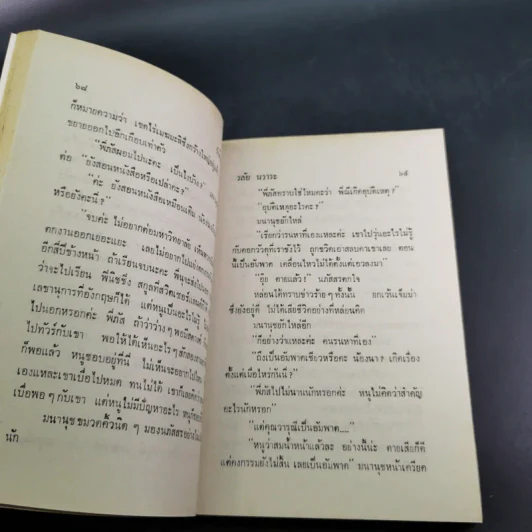 ๖๘
ก็หมายความว่า เขตไร่เมฆมะลิซึ่งกว้างใหญ่
ขยายออกไปอีกเกือบเท่าตัว
"พี่ภัสผอมไปนะคะ เป็นไงบ้าง"
ต่อ "ยังสอนหนังสือหรือเปล่าคะ?"
"ค่ะ ยังสอนหนังสือเหมือนเดิม
หรือยังคะนี่?
"จบค่ะ ไม่อยากต่อมหาวิทยาลัย
ตกงานออกเยอะแยะ เลยไม่อยากไป
อีกสี่ปีข้างหน้า ถ้าเรียนจบนะคะ พี่นุจะส่งไป
ว่าจะไปเรียน พี่นิชชิ่ง สกุลที่สวิตเซอร์แลนด์
เลขานุการที่อังกฤษก็ได้ แต่หนูเป็นอะไร
ไปนอกหรอกค่ะ พี่ภัส ถ้าว่าว่าง ๆ พอมีสตางค์
ไปทัวร์กับเขา พอให้ได้เห็นอะไร ๆ สักสอง
ก็พอแล้ว หนูชอบอยู่ที่นี่ ไม่เห็นจะอยากไปไหน
เองแหละเขาเบื่อไปหมด ทนไม่ได้ เขาก็เลย
เบื่อพอ ๆ กับเขา แต่หนูไม่มีปัญหาอะไร หนู
มนานุชขมวดคิ้วนิด ๆ มองนภัสสรอย่าง
นัก
วลัย นวาระ ๖๙
"พี่ภัสทราบใช่ไหมคะว่า พี่ณีเกิดอุบัติเหตุ?"
"อุบัติเหตุอะไรคะ?"
มนานุชยักไหล่
"เรียกว่ารนหาที่เองแหละค่ะ เขาไปวุ่นอะไรไม่รู้
กับคอกวัวดุที่เราขังไว้ ถูกขวิดเอาสลบคาเขาเลย ตอน
นี้เป็นอัมพาต เคลื่อนไหวไม่ได้ตั้งแต่เอวลงมา"
"อุ๊ย ตายแล้ว!" นภัสสรตกใจ
หล่อนได้ทราบข่าวร้าย ๆ ทั้งนั้น ยกเว้นเจ็มม่า
ซึ่งยังอยู่ดี ไม่ได้เสียชีวิตอย่างที่หล่อนคิด
มนานุชยักไหล่อีก
"ก็อย่างว่าแหละค่ะ คนรนหาที่เอง"
"ถึงเป็นอัมพาตเชียวหรือคะ น้องนา? เกิดเรื่อง
ตั้งแต่เมื่อไหร่กันนี่?"
"พี่ภัสไปไม่นานนักหรอกค่ะ หนูไม่คิดว่าสำคัญ
อะไรนักหรอก"
"แต่คุณวารุณีเป็นอัมพาต__"
"หนูว่าสมน้ำหน้าแล้วละ อย่างนี้น่ะ ตายเสียก็ดี
แต่คงกรรมยังไม่สิ้น เลยเป็นอัมพาต" มนานุชหน้าเครียด